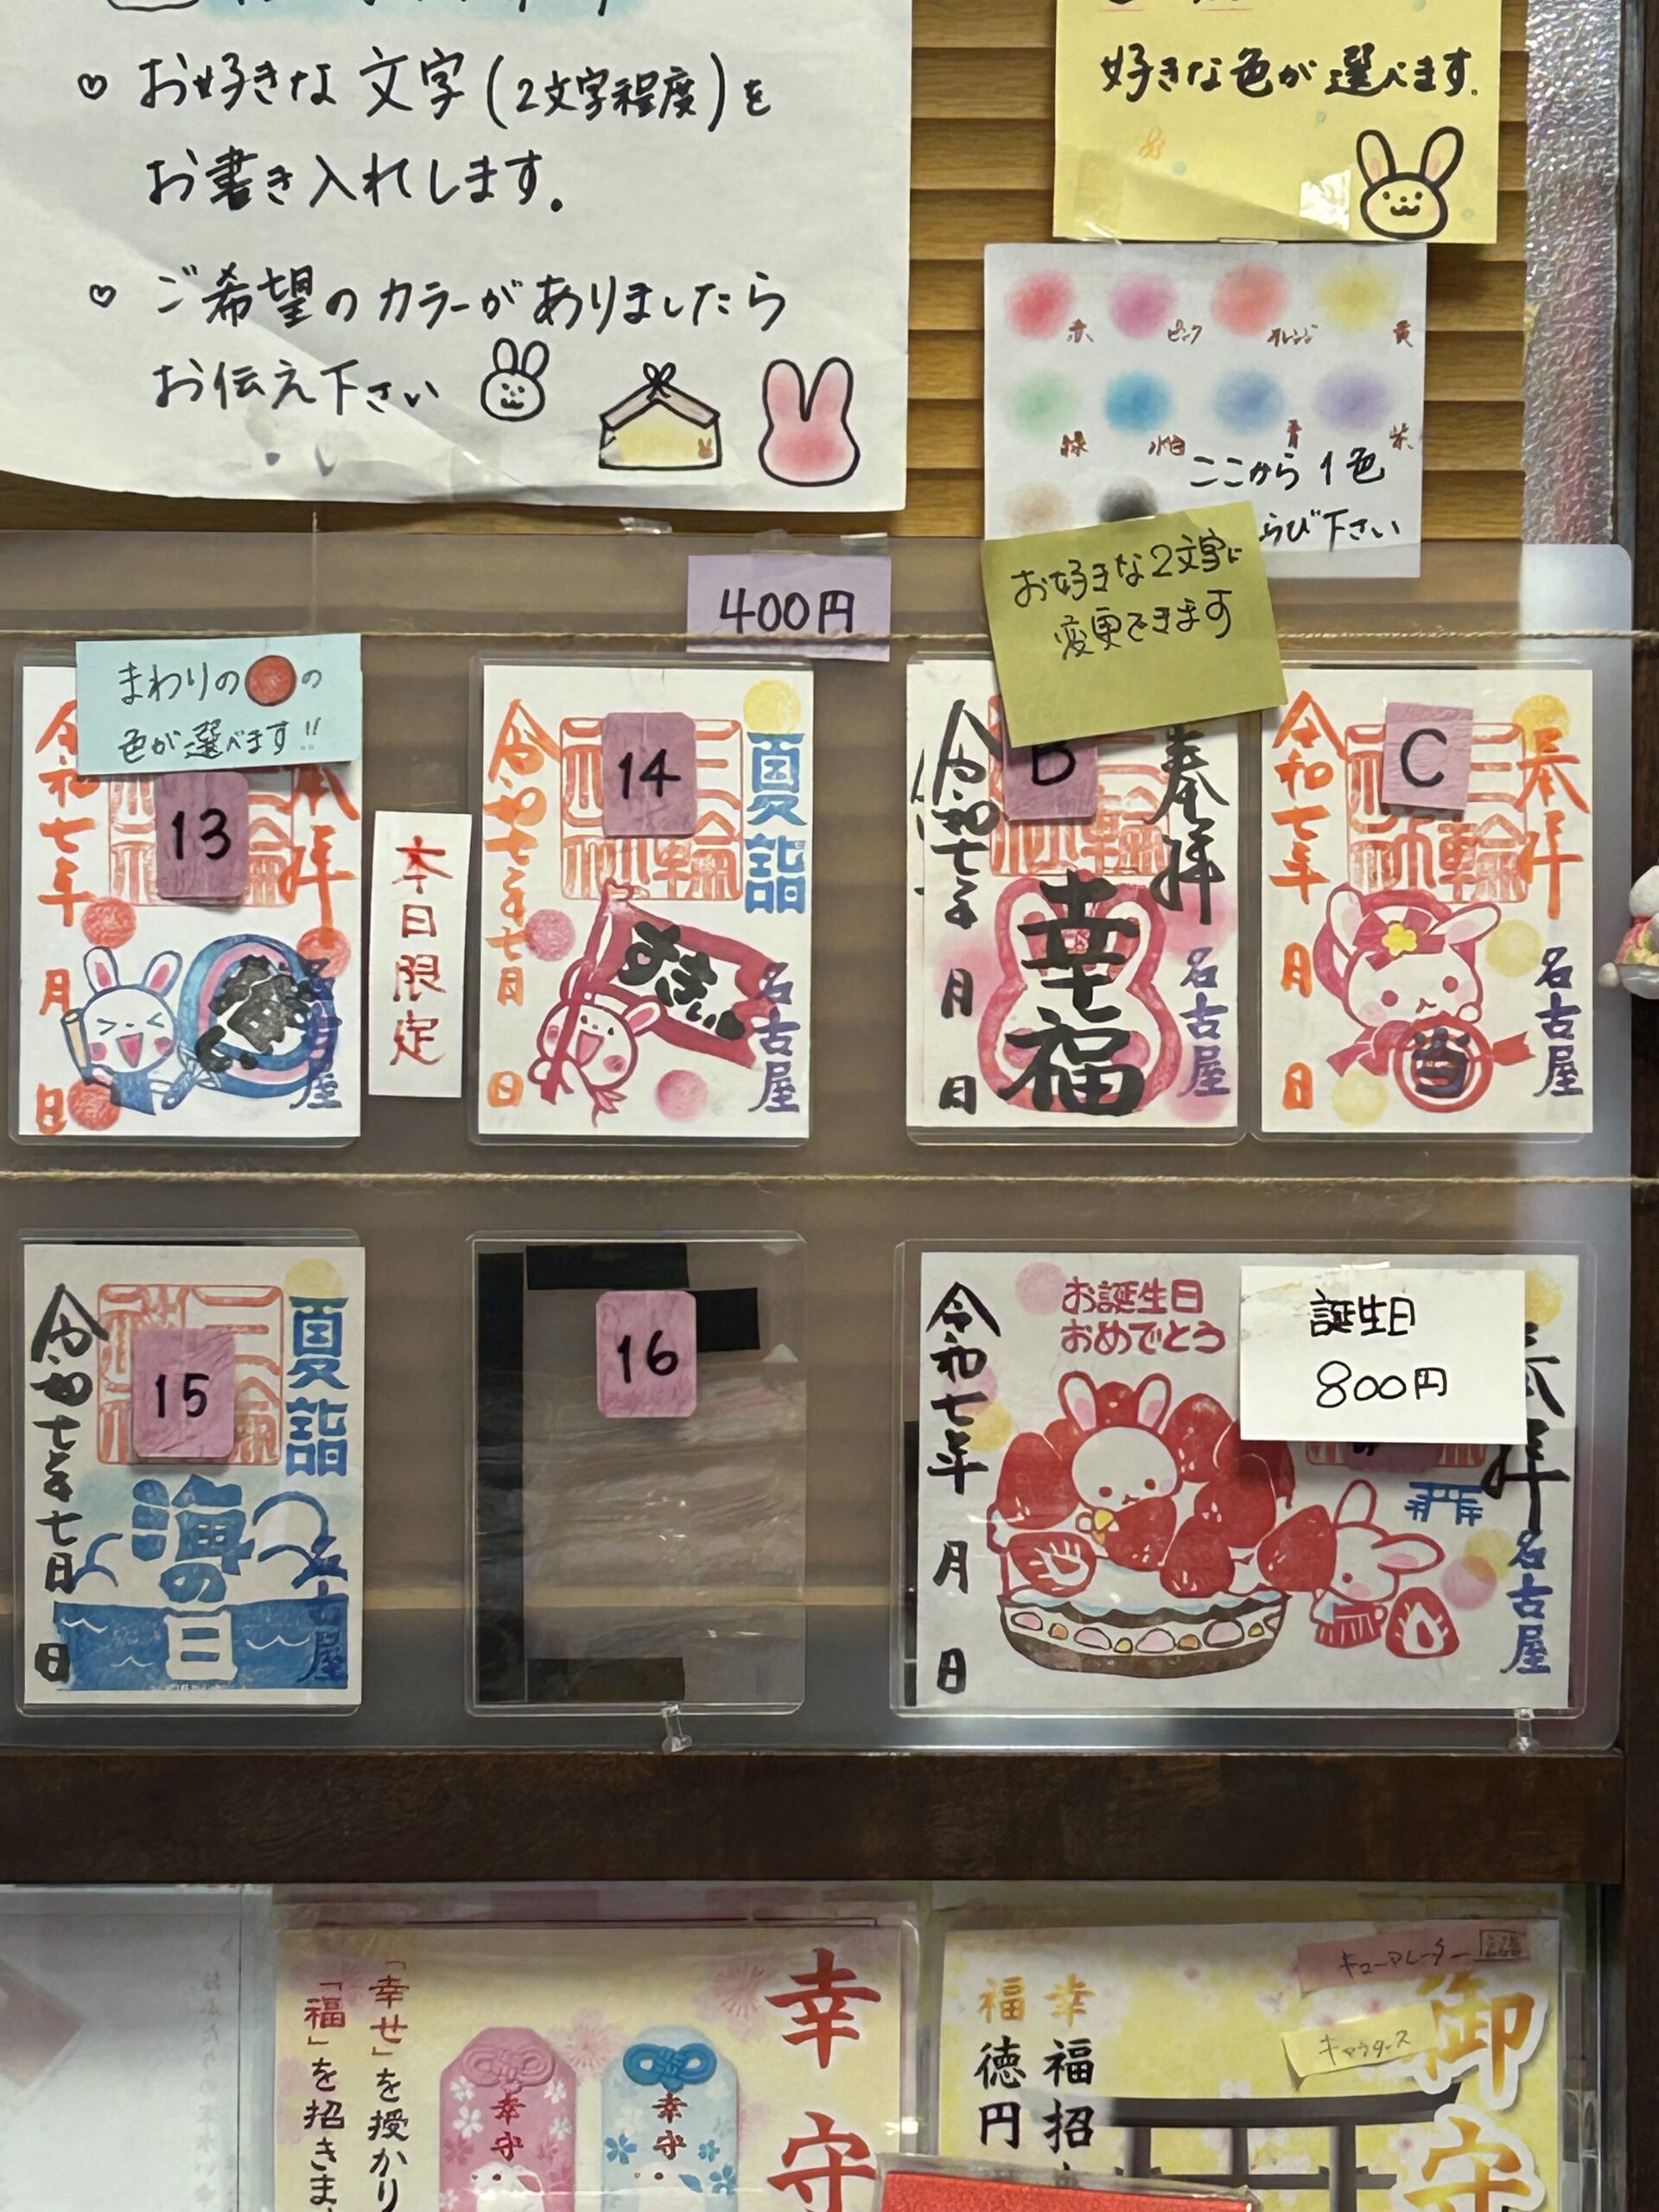 ♡ お好きな文字(2文字程度)を
お書き入れします。
♡ ご希望のカラーがありましたら
お伝え下さい
好きな色が選べます。
赤
ピンク
オレンジ
黄
緑
水色
青
紫
ここから1色
らび下さい
400円
お好きな2文字に
変更できます
まわりの●の
色が選べます!!
13
奉拝
令和七年
月
日
名古屋
本日限定
14
夏詣
三輪
令和七年七月
日
名古屋
B
奉拝
幸福
令和七年
月
日
名古屋
C
奉拝
三輪
当
令和七年
月
日
名古屋
15
夏詣
海の日
令和七年七月
日
古屋
16
誕生日
800円
お誕生日
おめでとう
奉拝
令和七年
月
日
名古屋
幸守
「幸せ」を授かり
「福」を招きま
幸守
幸守
御守
キューアレーター
幸福招
福徳円